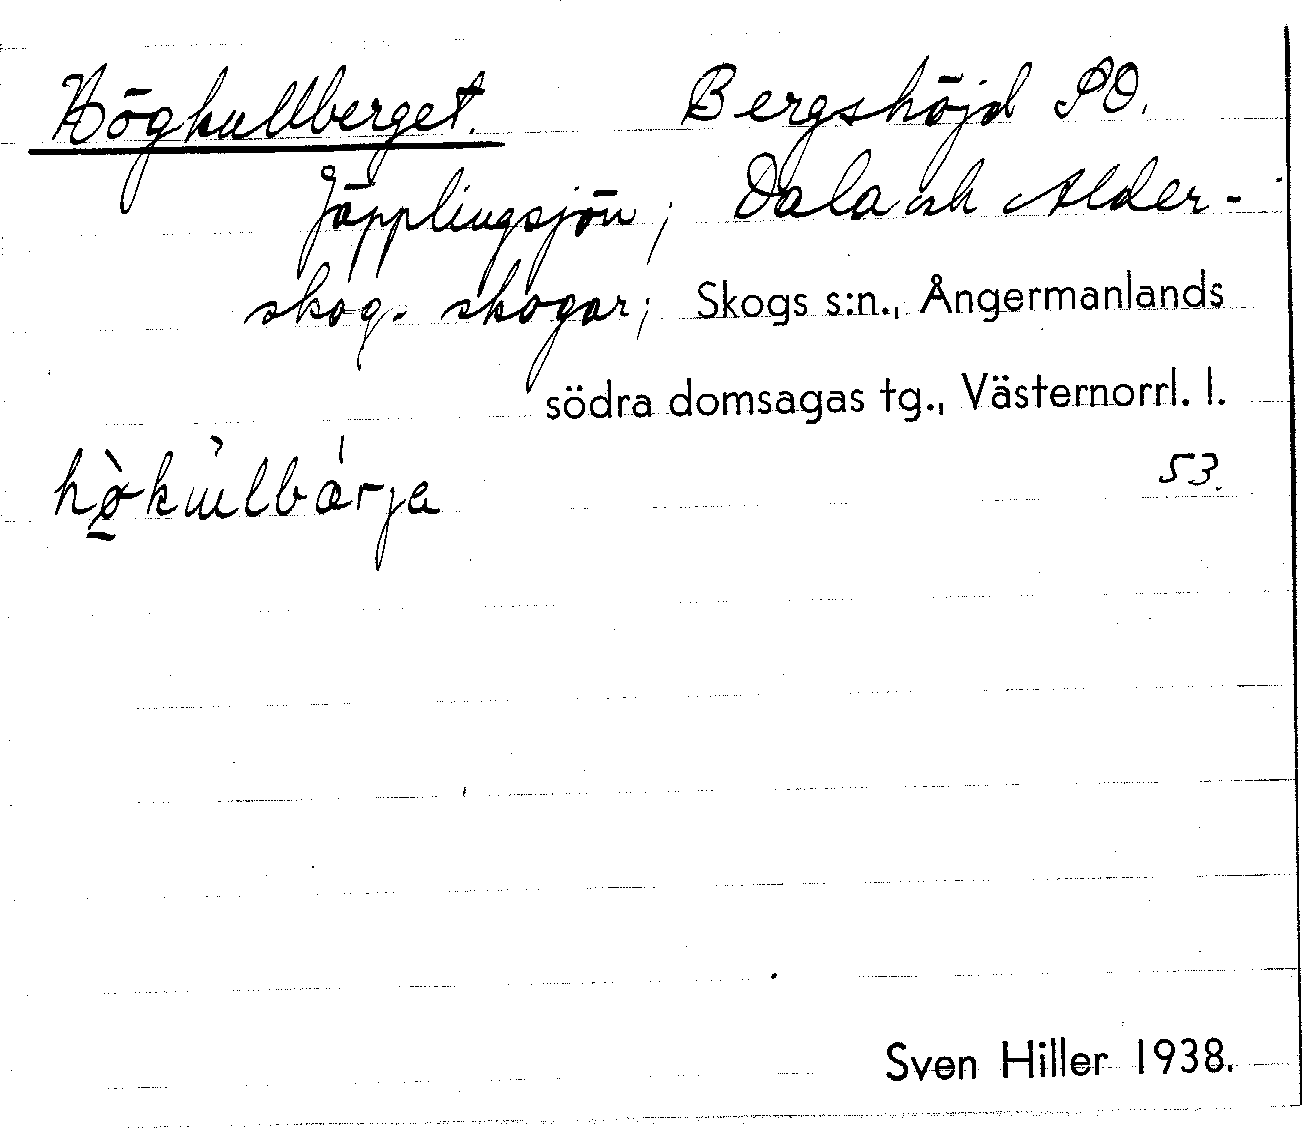 Högkullberget. Bergshöjd SO.
Jäpplingsjön; Dala och Alder-
skog. skogar; Skogs s:n., Ångermanlands
södra domsagas tg., Västernorrl. l.
53.
Sven Hiller 1938.